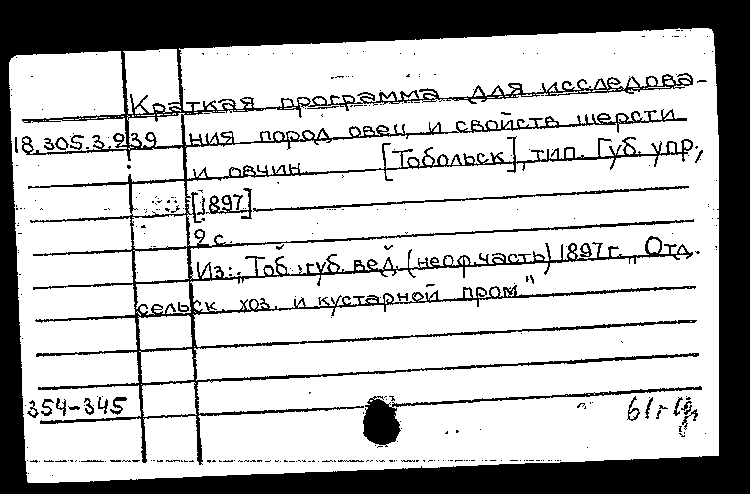 Краткая программа для исследова-
18.305.3.239 ния пород овец и свойств шерсти
и овчин. [Тобольск], тип. Губ. упр.,
[1897].
2 с.
Из: „Тоб. губ. вед. (неоф. часть) 1897 г. „Отд.
сельск. хоз. и кустарной пром."
354-345
61г